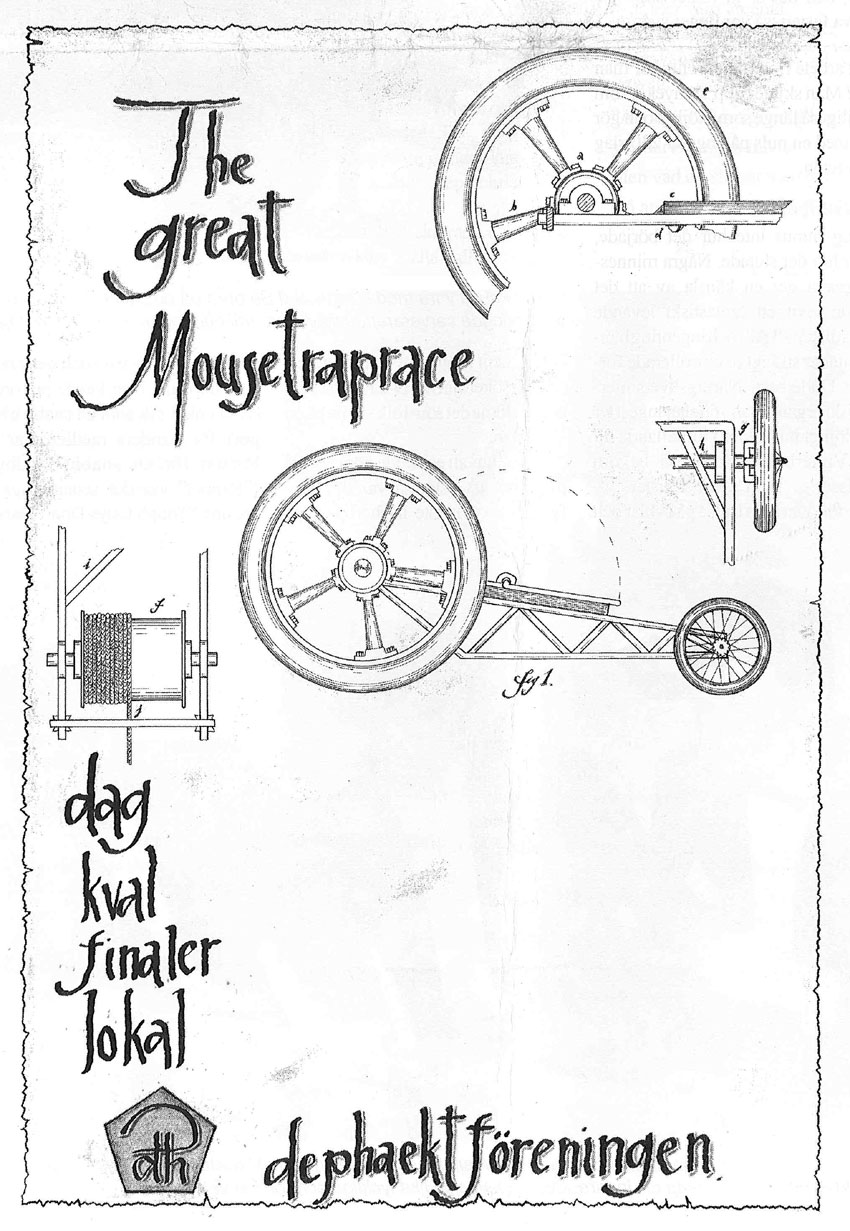 The
great
Mousetraprace
a
b
c
d
e
g
h
i
f
j
fig 1.
dag
kval
finaler
lokal
dth
dephaektföreningen